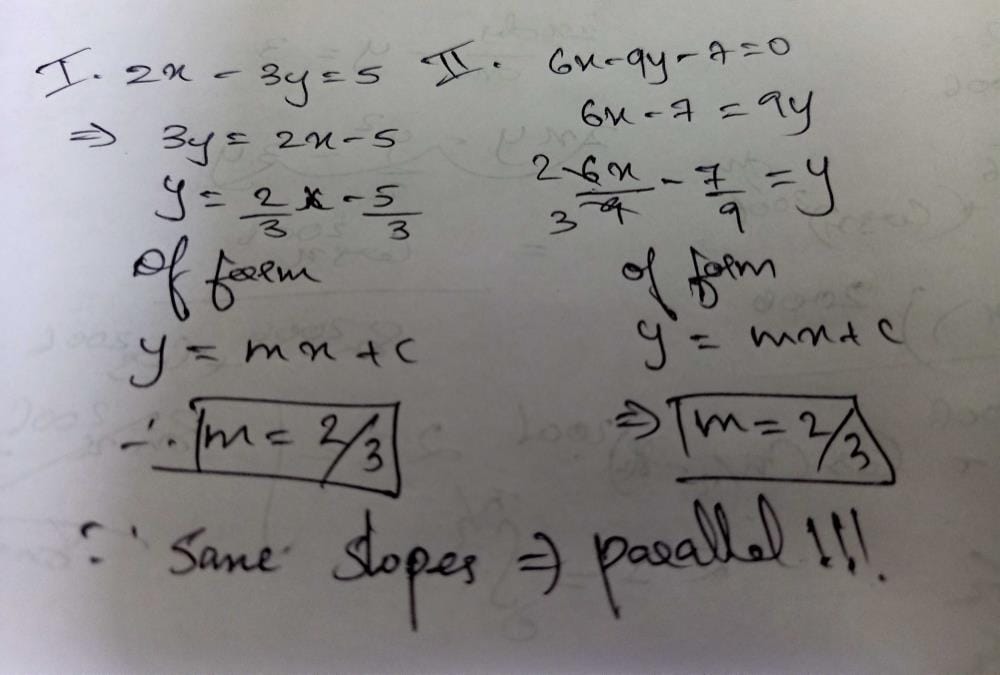 I. 2x - 3y = 5
⇒ 3y = 2x - 5
y = 2/3 x - 5/3
Of form
y = mx + c
∴ m = 2/3
II. 6x - 9y - 7 = 0
6x - 7 = 9y
2 6x/9 3 - 7/9 = y
of form
y = mx + c
⇒ m = 2/3
∵ Same slopes ⇒ parallel !!!